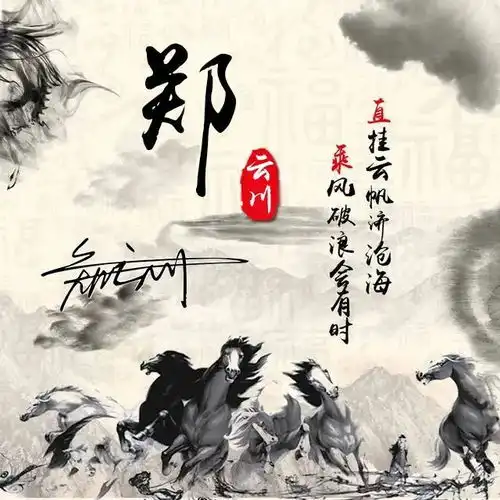 郑
云川
直挂云帆济沧海
乘风破浪会有时